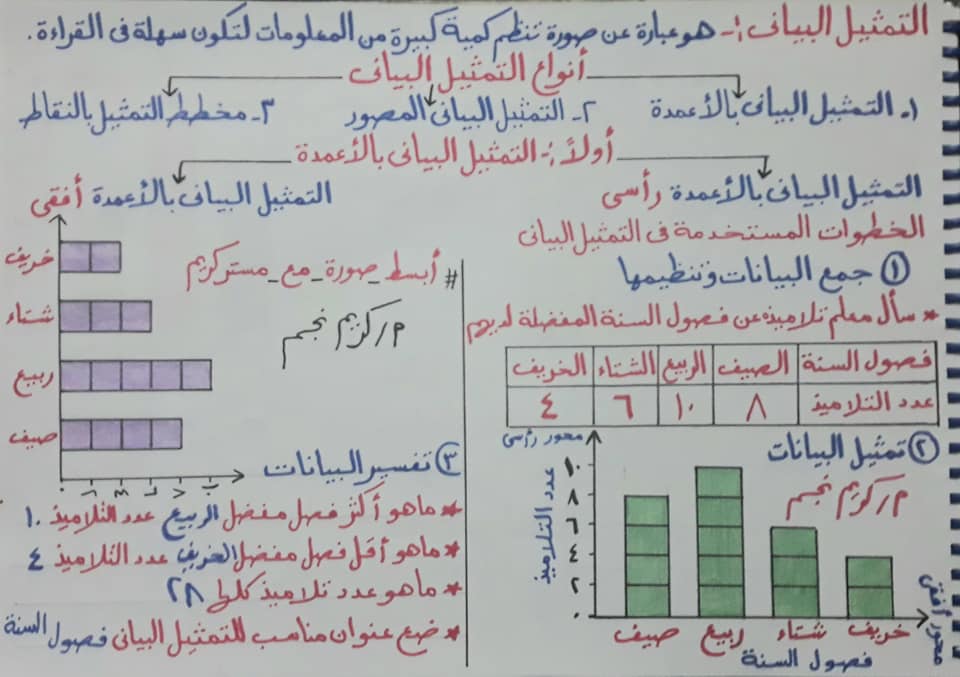 التمثيل البيانى :- هو عبارة عن صورة تنظم كمية كبيرة من المعلومات لتكون سهلة فى القراءة .
أنواع التمثيل البيانى
١- التمثيل البيانى بالأعمدة
٢- التمثيل البيانى المصور
٣- مخطط التمثيل بالنقاط
أولاً :- التمثيل البيانى بالأعمدة
التمثيل البيانى بالأعمدة رأسى
التمثيل البيانى بالأعمدة أفقى
الخطوات المستخدمة فى التمثيل البيانى
١ جمع البيانات وتنظيمها
* سأل معلم تلاميذه عن فصول السنة المفضلة لديهم
فصول السنة الصيف الربيع الشتاء الخريف
عدد التلاميذ ٨ ١٠ ٦ ٤
٢ تمثيل البيانات
م/ كريم نجم
محور رأسى
عدد التلاميذ
١٠
٨
٦
٤
٢
٠
صيف ربيع شتاء خريف
فصول السنة
محور أفقى
خريف
شتاء
ربيع
صيف
# أبسط_صورة_مع_مستر كريم
م/ كريم نجم
٣ تفسير البيانات
* ماهو أكثر فصل مفضل الربيع عدد التلاميذ ١٠
* ماهو أقل فصل مفضل الخريف عدد التلاميذ ٤
* ماهو عدد تلاميذ كلها ٢٨
* ضع عنوان مناسب للتمثيل البيانى فصول السنة